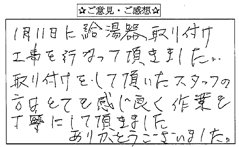 ☆ご意見・ご感想☆
1月11日に給湯器取り付け
工事を行なって頂きました。
取り付けをして頂いたスタッフの
方はとても感じ良く作業を
丁寧にして頂きました
ありがとうございました。